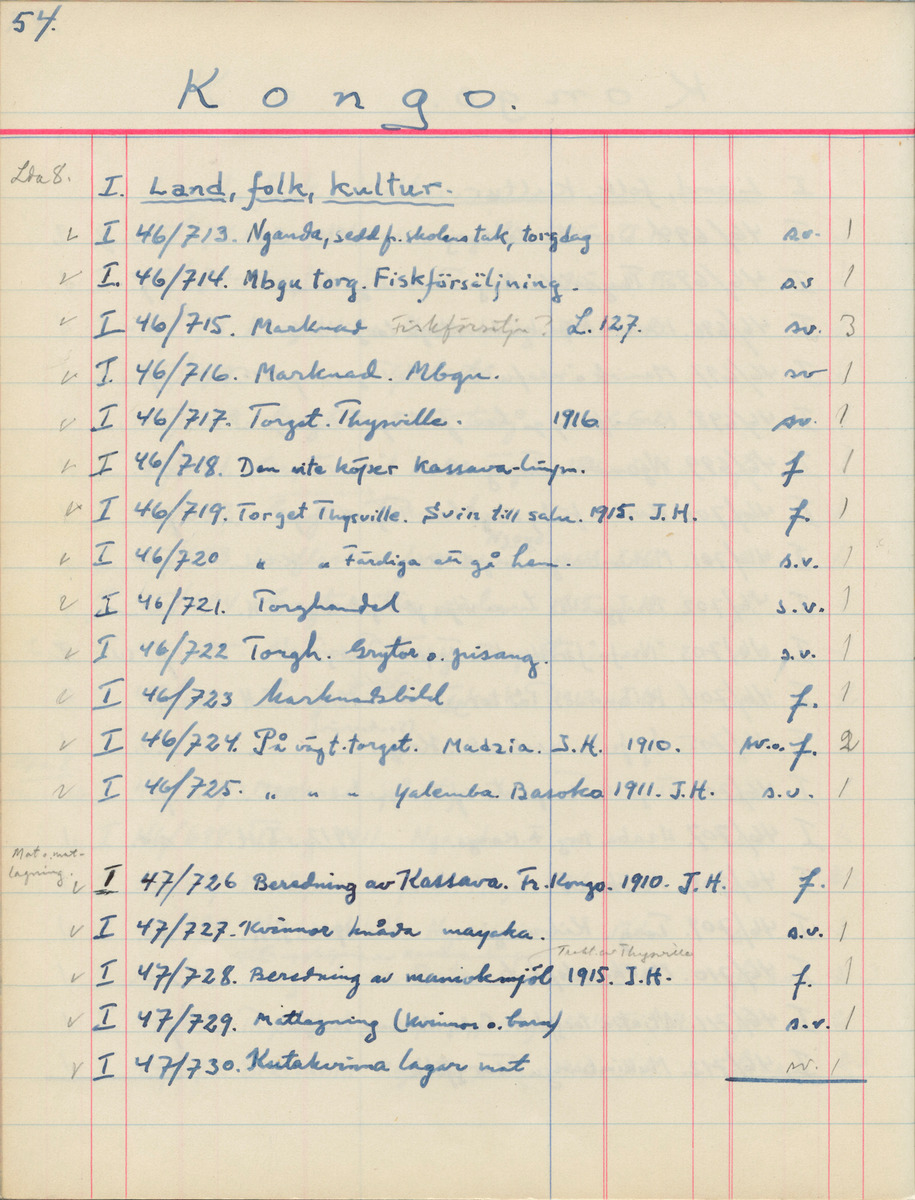 54.
Kongo.
Lda 8.
I. Land, folk, kultur.
I 46/713. Nganda, sedd fr. skolans tak, torgdag s.v. 1
I. 46/714. Mbgu torg. Fiskförsäljning. s.v 1
I 46/715. Marknad Fiskförsäljn? L. 127. sv. 3
I. 46/716. Marknad. Mbgu. sv 1
I 46/717. Torget. Thysville. 1916. sv. 1
I 46/718. Den vite köper Kassava- f 1
I 46/719. Torget Thysville. Svin till salu. 1915. J.H. f. 1
I 46/720 " " Färdiga att gå hem. s.v. 1
I 46/721. Torghandel s.v. 1
I 46/722 Torgh. Grytor o. pisang. s.v. 1
I 46/723 Marknadsbild f. 1
I 46/724. På väg t. torget. Madzia. J.H. 1910. sv. o. f. 2
I 46/725. " " " Yalemba. Basoko 1911. J.H. s.v. 1
Mat o. mat-
lagning.
I 47/726 Beredning av Kassava. Fr. Kongo. 1910. J.H. f. 1
I 47/727. Kvinnor knåda mayaka. s.v. 1
Trakt av Thysville
I 47/728. Beredning av maniokmjöl 1915. J.H. f. 1
I 47/729. Matlagning (kvinnor o. barn) s.v. 1
I 47/730. Kutakvinna lagar mat sv. 1